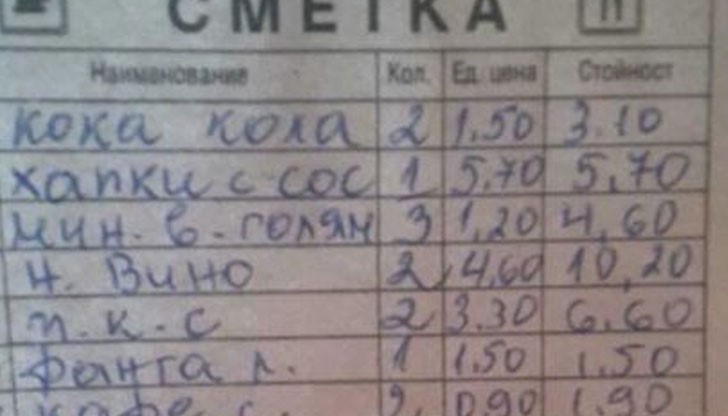 СМЕТКА
Наименование Кол. Ед. цена Стойност
кока кола 2 1.50 3.10
хапки с сос 1 5.70 5.70
мин. в. голям 3 1,20 4,60
н. Вино 2 4,60 10,20
п.к.с 2 3.30 6.60
фанта л. 1 1.50 1.50
кафе 2 0.90 1.90